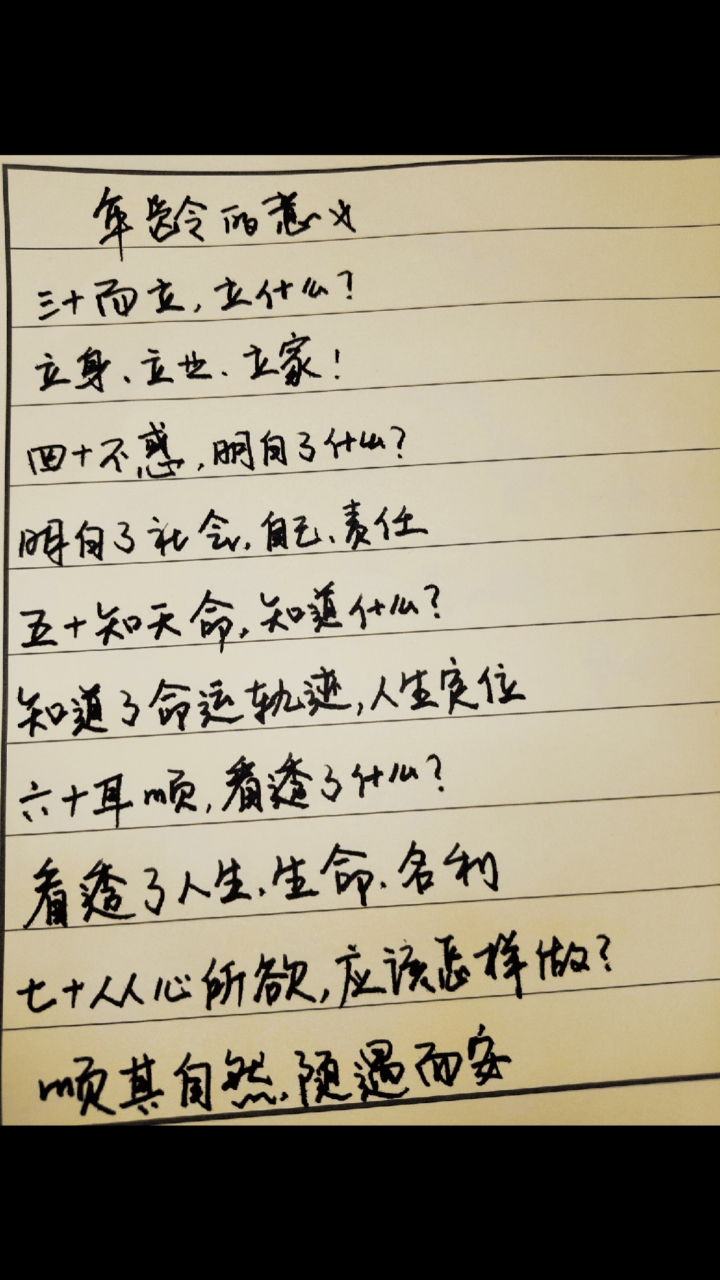 年龄的意义
三十而立,立什么?
立身、立业、立家!
四十不惑,明白了什么?
明白了社会、自己、责任
五十知天命,知道什么?
知道了命运轨迹,人生定位
六十耳顺,看透了什么?
看透了人生、生命、名利
七十从心所欲,应该怎样做?
顺其自然、随遇而安